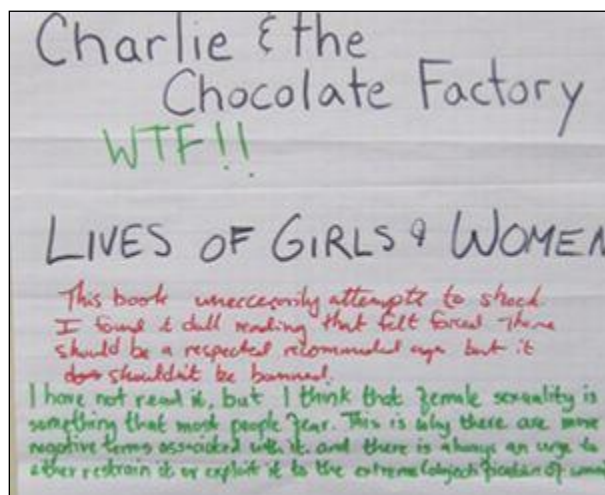 Charlie & the
Chocolate Factory
WTF!!
LIVES OF GIRLS & WOMEN
This book unneccessarily attempts to shock.
I found it dull reading that felt forced There
should be a respected recommended age but it
shouldn't be banned.
I have not read it, but I think that female sexuality is
something that most people fear. This is why there are more
negative terms associated with it. and there is always an urge to
either restrain it or exploit it to the extreme (objectification of